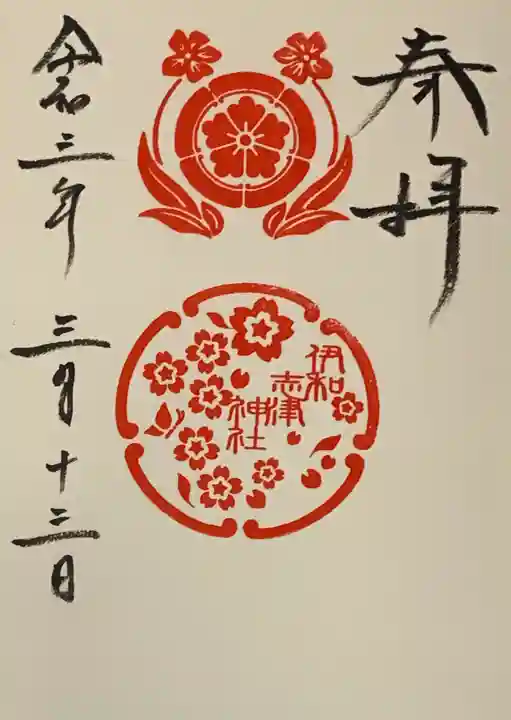 奉拝
伊和
志津
神社
令和三年 三月十三日